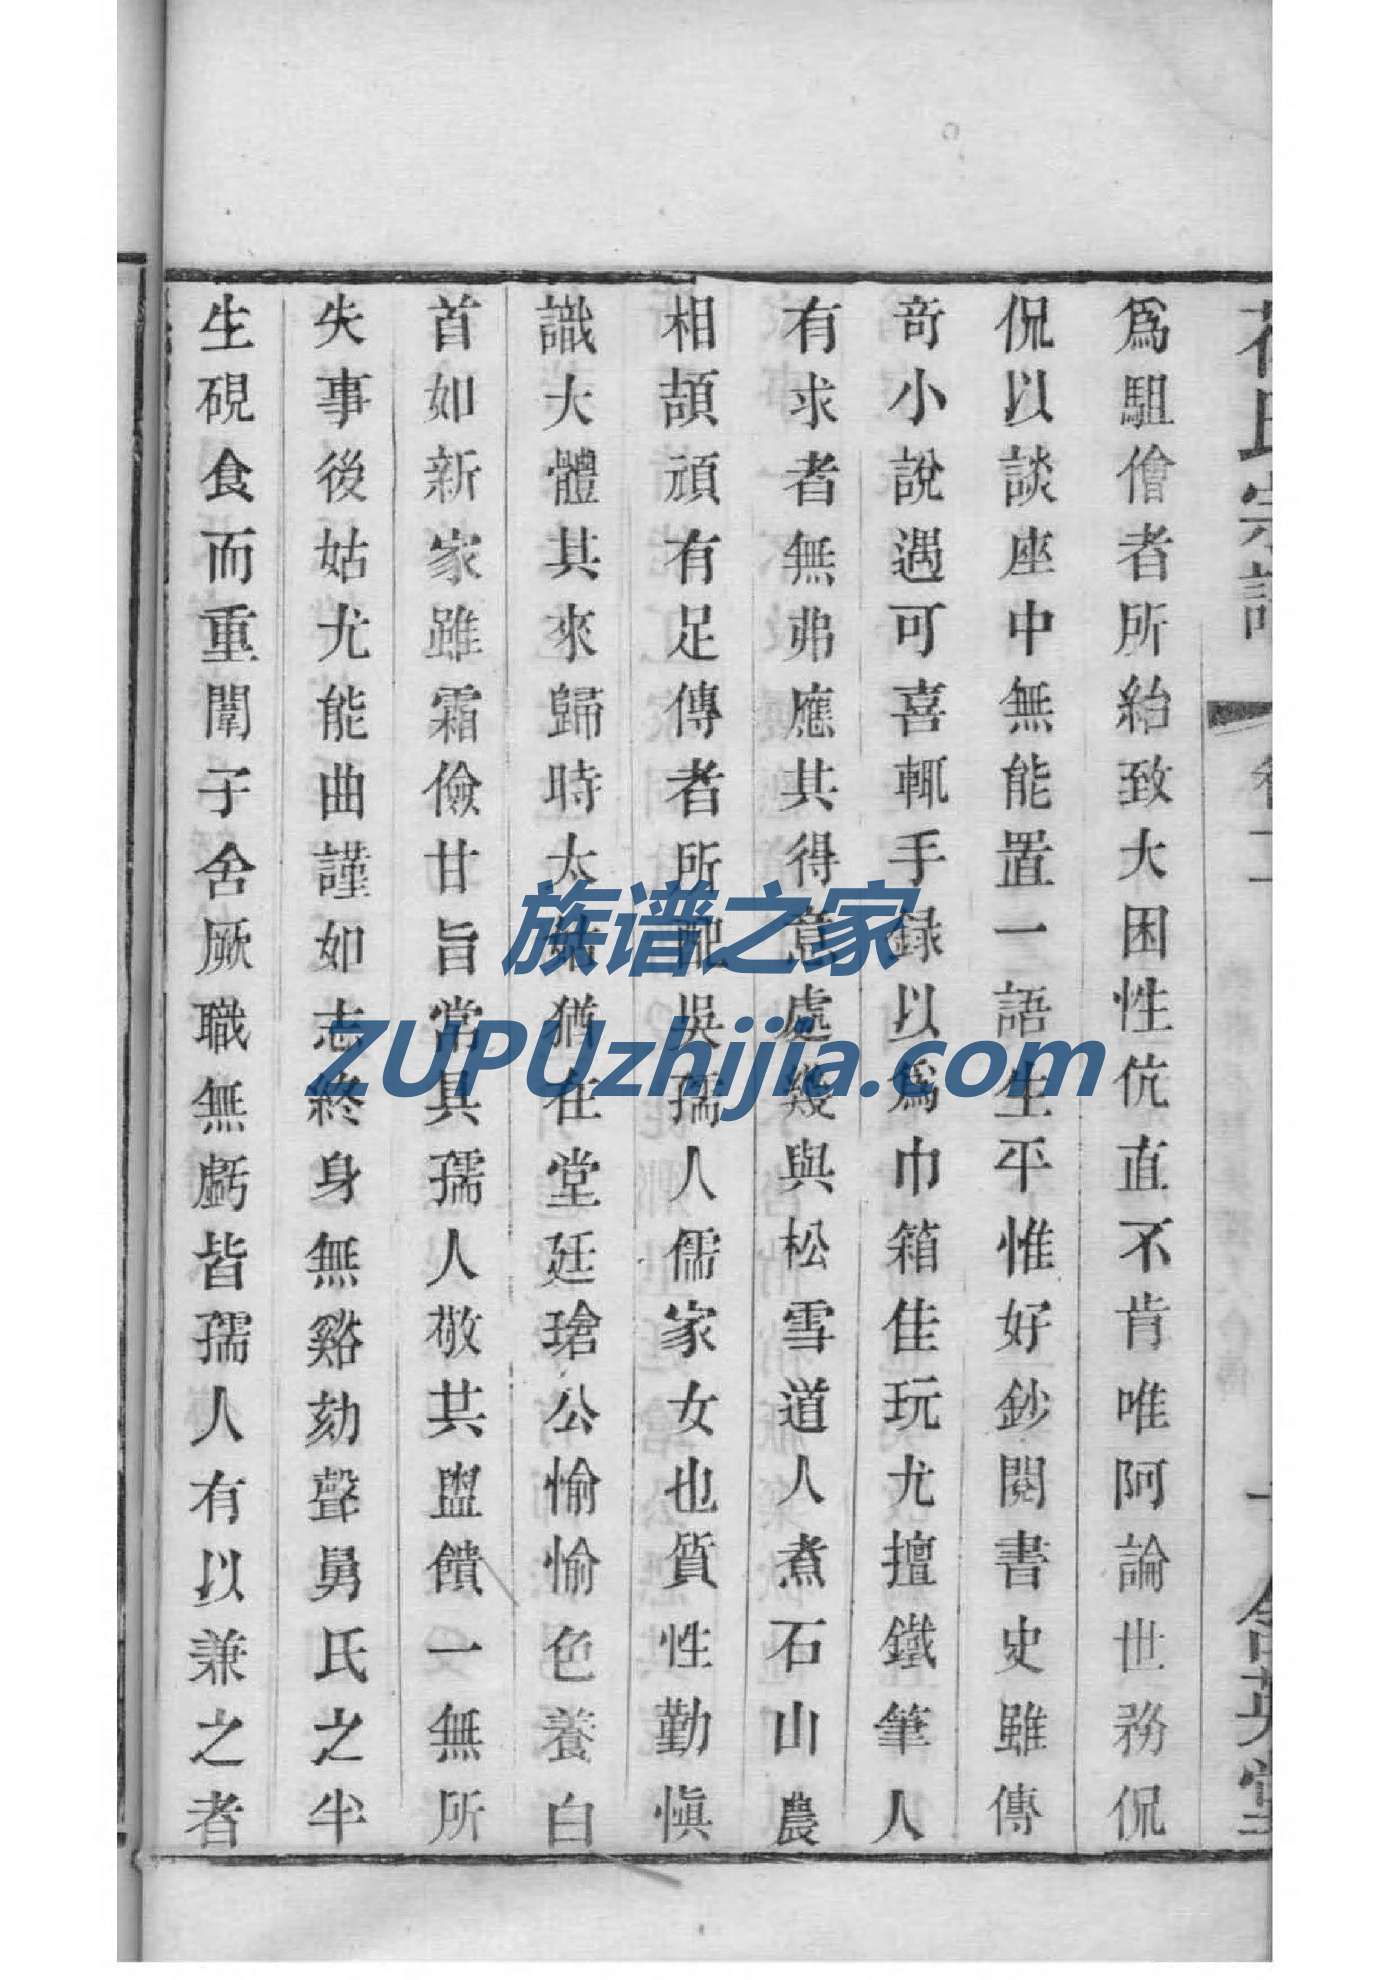 爲駔儈者所紿致大困性伉直不肯唯阿論世務侃
侃以談座中無能置一語生平惟好鈔閱書史雖傳
奇小說遇可喜輒手録以爲巾箱佳玩尤擅鐵筆人
有求者無弗應其得意處幾與松雪道人煮石山農
相頡頏有足傳者所配吳孺人儒家女也質性勤愼
識大體其來歸時太姑猶在堂廷瑲公愉愉色養白
首如新家雖霜儉甘旨常具孺人敬共盥饋一無所
失事後姑尤能曲謹如志終身無谿勃聲舅氏之半
生硯食而重闈子舍厥職無虧皆孺人有以兼之者
族谱之家
ZUPUzhijia.com